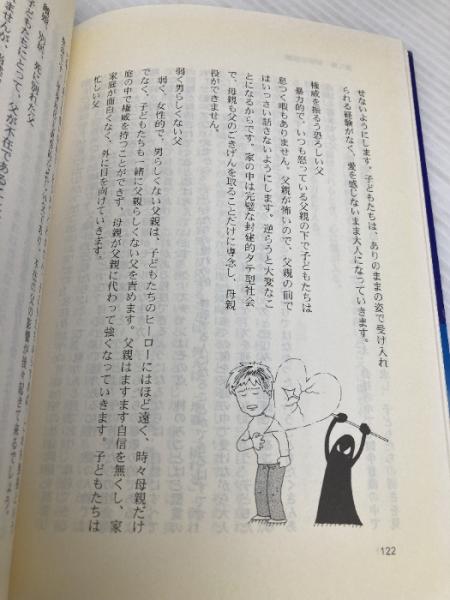 せないようにします。子どもたちは、ありのままの姿で受け入れ
られる経験がなく、愛を感じないまま大人になっていきます。
権威を振るう恐ろしい父
暴力的で、いつも怒っている父親の下で子どもたちは
息つく暇もありません。父親が怖いので、父親の前で
はいっさい話さないようにします。逆らうと大変なこ
とになるからです。家の中は完璧な封建的タテ型社会
で、母親も父のごきげんを取ることだけに専念し、母親
役ができません。
弱く男らしくない父
弱く、女性的で、男らしくない父親は、子どもたちのヒーローにはほど遠く、時々母親だけ
でなく、子どもたちも一緒に父親らしくない父を責めます。父親はますます自信を無くし、家
庭の中で権威を持つことができず、母親が父親に代わって強くなっていきます。子どもたちは
家庭が面白くなく、外に目を向けていきます。
忙しい父
122
子どもたちにとって、父が不在であること